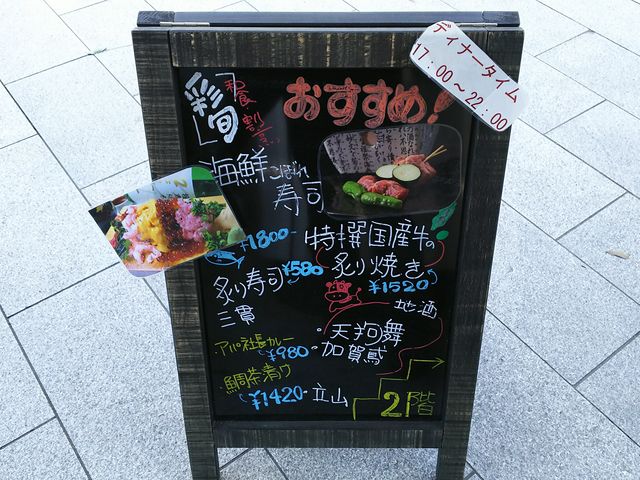 ディナータイム
17:00～22:00
和食・割烹
「彩旬」
おすすめ!
海鮮こぼれ
寿司
¥1800-
炙り寿司
三貫
¥580
アパ社長カレー
¥980-
鯛茶漬け
¥1420-
特撰国産牛の
炙り焼き
¥1520
地酒
・天狗舞
・加賀鳶
・立山
2階